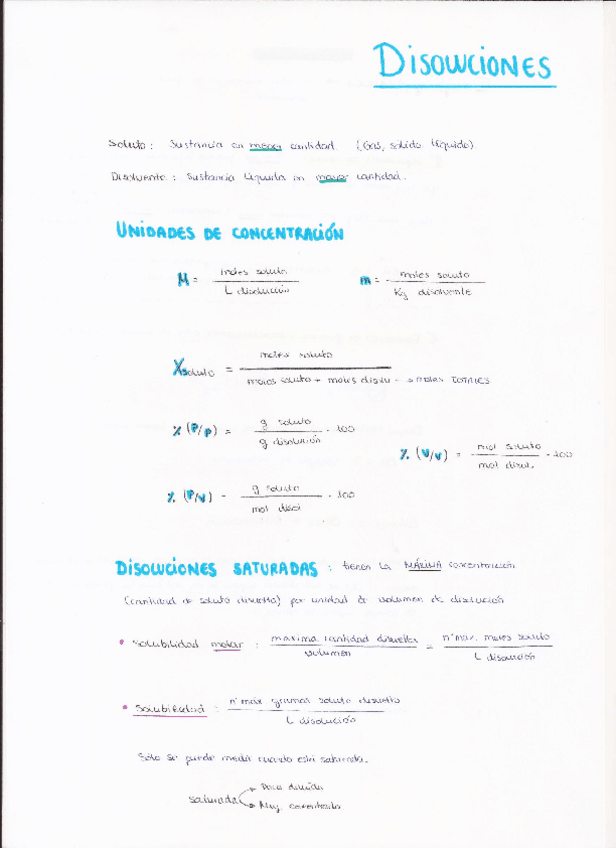 DISOLUCIONES
Soluto: Sustancia en menor cantidad. (Gas, solido líquido)
Disolvente: Sustancia líquida en mayor cantidad.
UNIDADES DE CONCENTRACIÓN
M = moles soluto / L disolución m = moles soluto / Kg disolvente
Xsoluto = moles soluto / moles soluto + moles disolv → moles TOTALES
% (P/P) = g soluto / g disolución · 100
% (V/V) = mol soluto / mol disol. · 100
% (P/V) = g soluto / mol disol · 100
DISOLUCIONES SATURADAS: tienen la MÁXIMA concentración
(cantidad de soluto disuelta) por unidad de volumen de disolución
• Solubilidad molar: máxima cantidad disuelta / volumen = nº max. moles soluto / L disolución
• Solubilidad: nº max gramos soluto disuelto / L disolución
Sólo se puede medir cuando está saturada.
saturada → Poco diluida
→ Muy concentrada